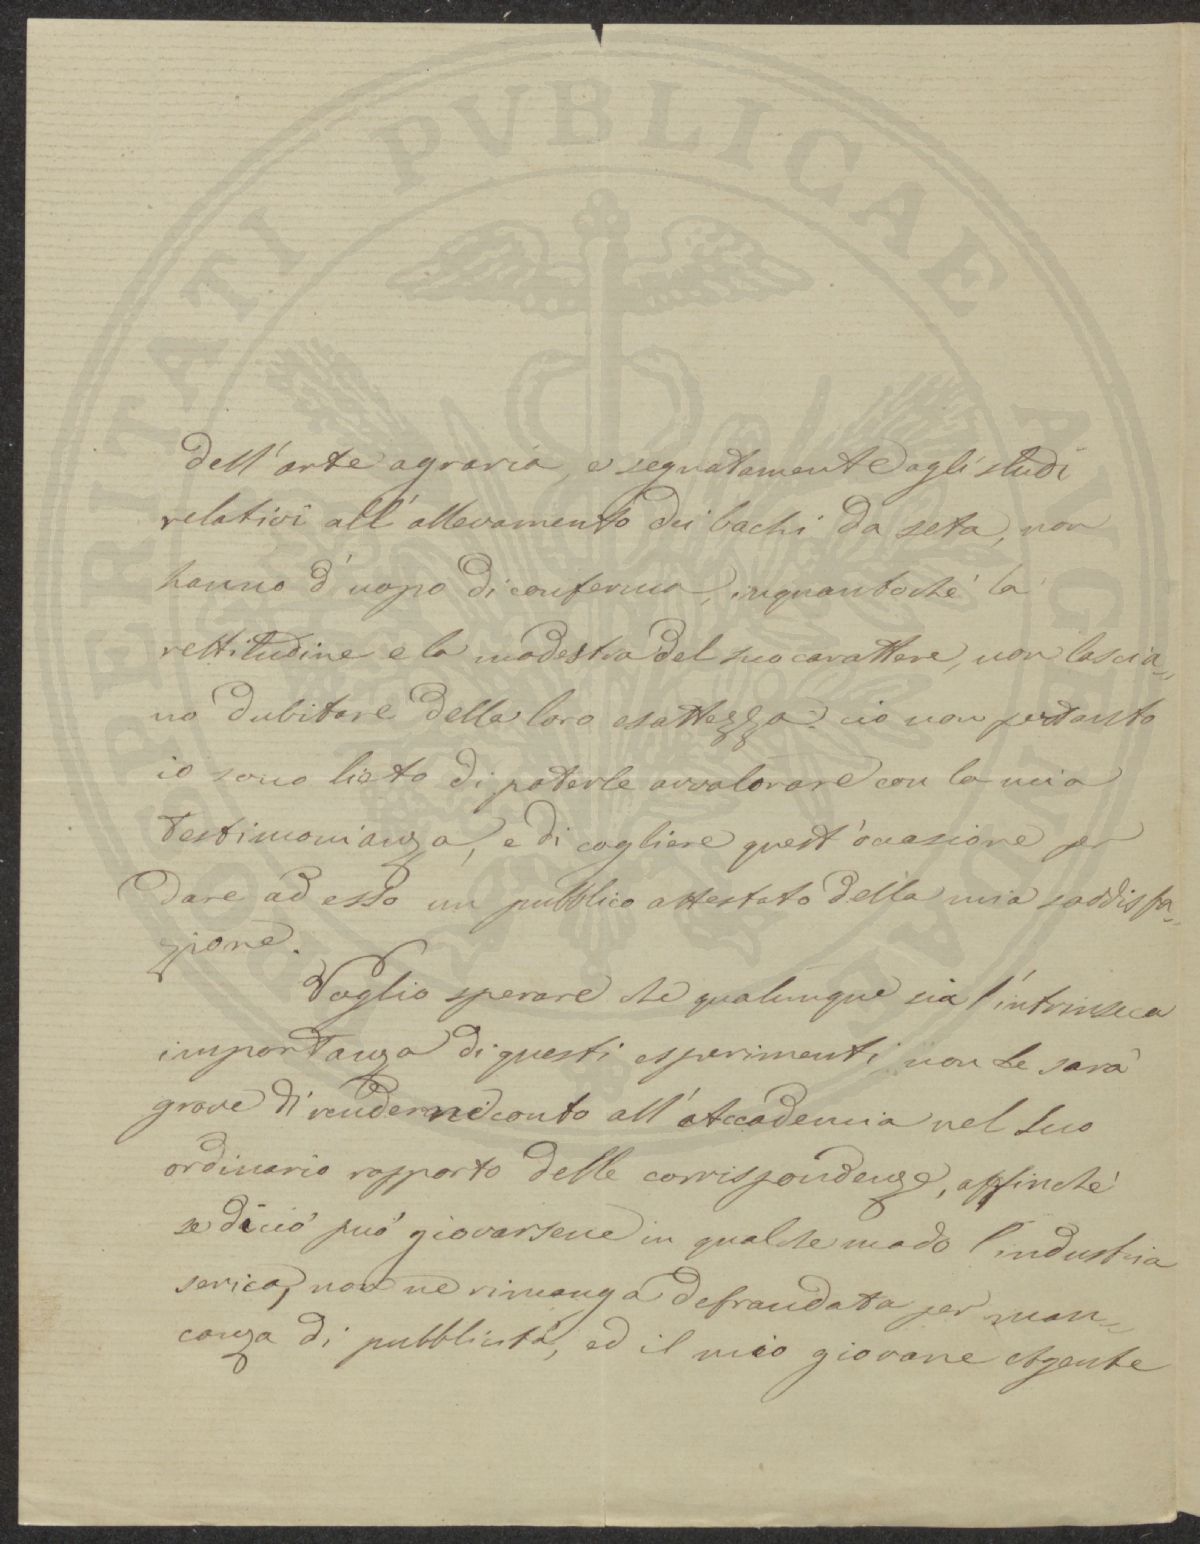 dell'arte agraria, e segnatamente agli studi
relativi all'allevamento dei bachi da seta, non
hanno d'uopo di conferma, inquantoché la
rettitudine e la modestia del suo carattere, non lascia„
no dubitare della loro esattezza: ciò non pertanto
io sono lieto di poterle avvalorare con la mia
testimonianza, e di cogliere quest'occasione per
dare ad esso un pubblico attestato della mia soddisfa„
zione.
Voglio sperare che qualunque sia l'intrinseca
importanza di questi esperimenti non Le sarà
grave di rendermi conto all'Accademia nel Suo
ordinario rapporto delle corrispondenze, affinché
se di ciò può giovarsene in qualche modo l'industria
serica, non ne rimanga defraudata per man„
canza di pubblicità, ed il mio giovane Agente
PROSPERITATI PVBLICAE AVGENDAE